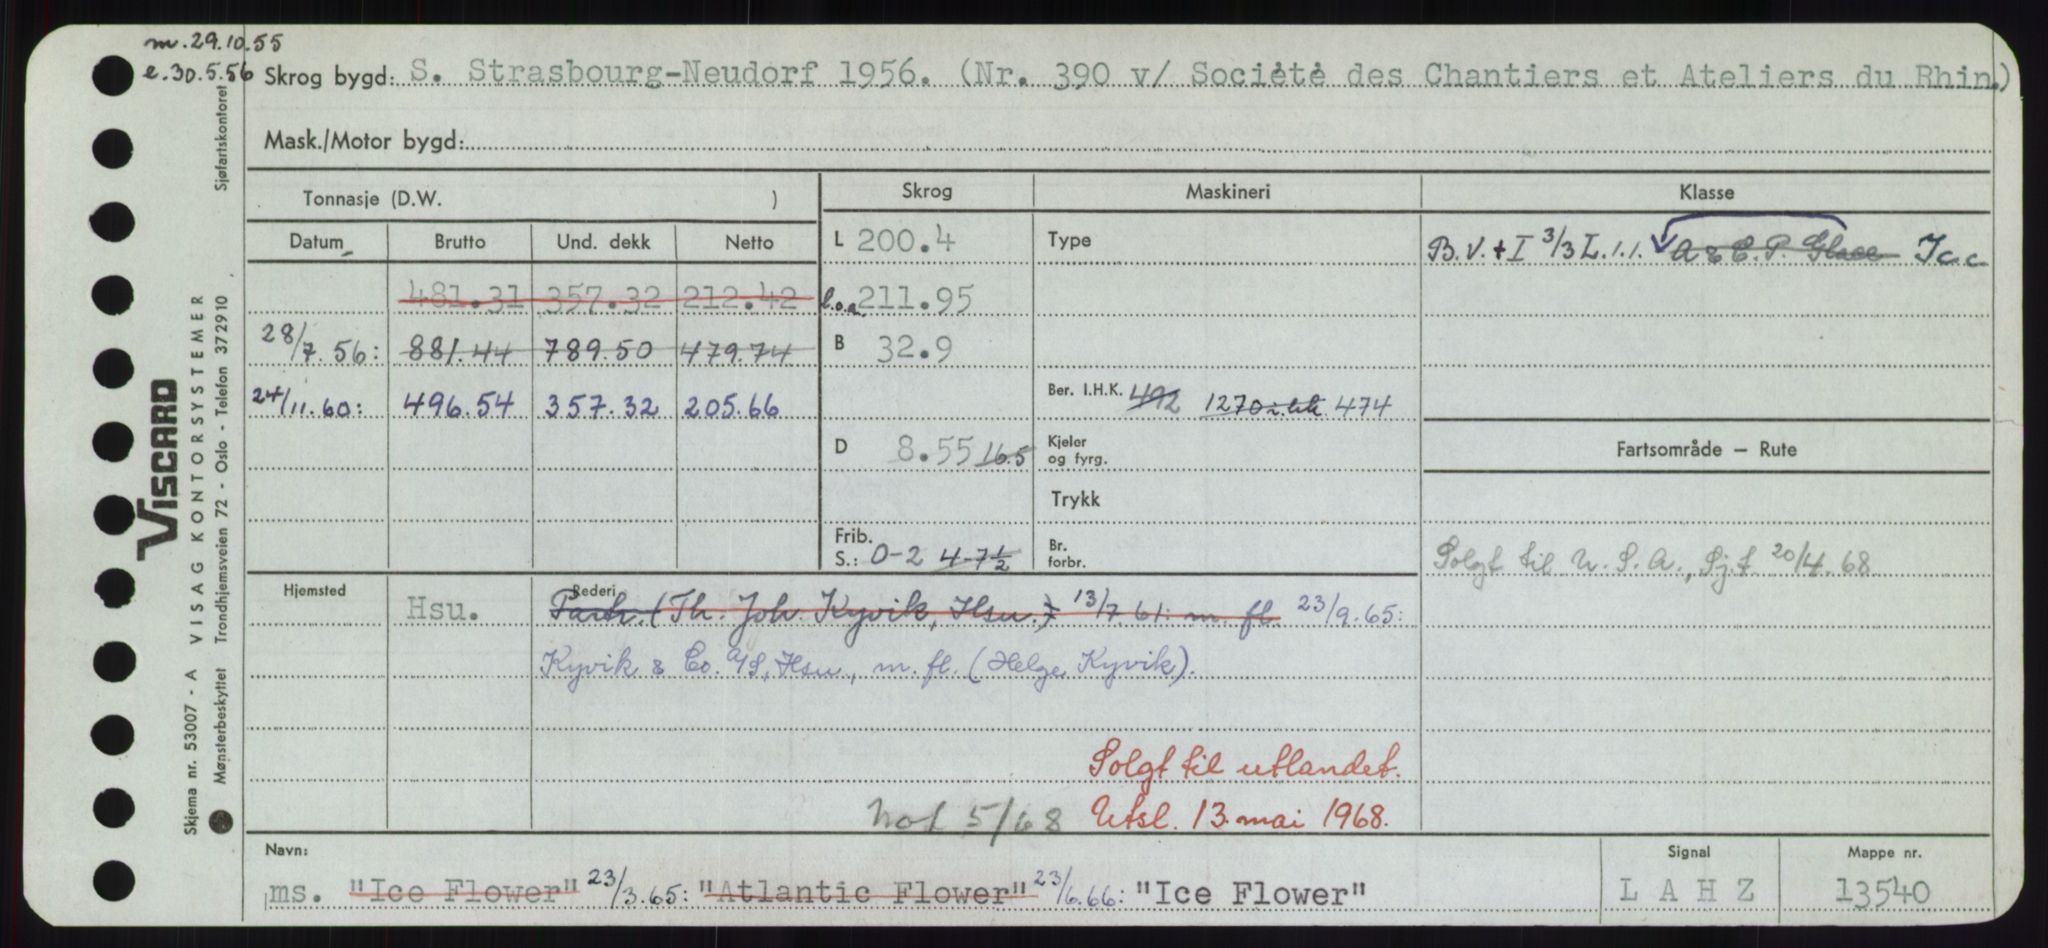 m. 29.10.55
e. 30.5.56 Skrog bygd: S. Strasbourg-Neudorf 1956. (Nr. 390 v/ Société des Chantiers et Ateliers du Rhin.)
Mask./Motor bygd:
Tonnasje (D.W. ) Skrog Maskineri Klasse
Datum Brutto Und. dekk Netto L 200.4 Type B.V. + I 3/3 L.1.1. A & C.P. Glace Ice
481.31 357.32 212.42 l.o.a. 211.95
28/7.56: 881.44 789.50 479.74 B 32.9
24/11.60: 496.54 357.32 205.66 Ber. I.H.K. 492 1270 474
D 8.55 16.5 Kjeler og fyrg. Fartsområde – Rute
Trykk
Frib. S.: 0-2 4-7½ Br. forbr. Solgt til U.S.A., Sj.f. 20/4.68
Hjemsted Hsu. Rederi Partr. (Th. Joh. Kyvik, Hsu.) 13/7.61: m. fl. 23/9.65:
Kyvik & Co. A/S, Hsu., m. fl. (Helge Kyvik).
Solgt til utlandet.
Not 5/68 Utsl. 13. mai 1968.
Navn: Signal Mappe nr.
ms. "Ice Flower" 23/3.65: "Atlantic Flower" 23/6.66: "Ice Flower" L A H Z 13540
Viscard
VISAG KONTORSYSTEMER
Skjema nr. 53007 - A
Mønsterbeskyttet Trondhjemsveien 72 - Oslo - Telefon 372910 Sjøfartskontoret